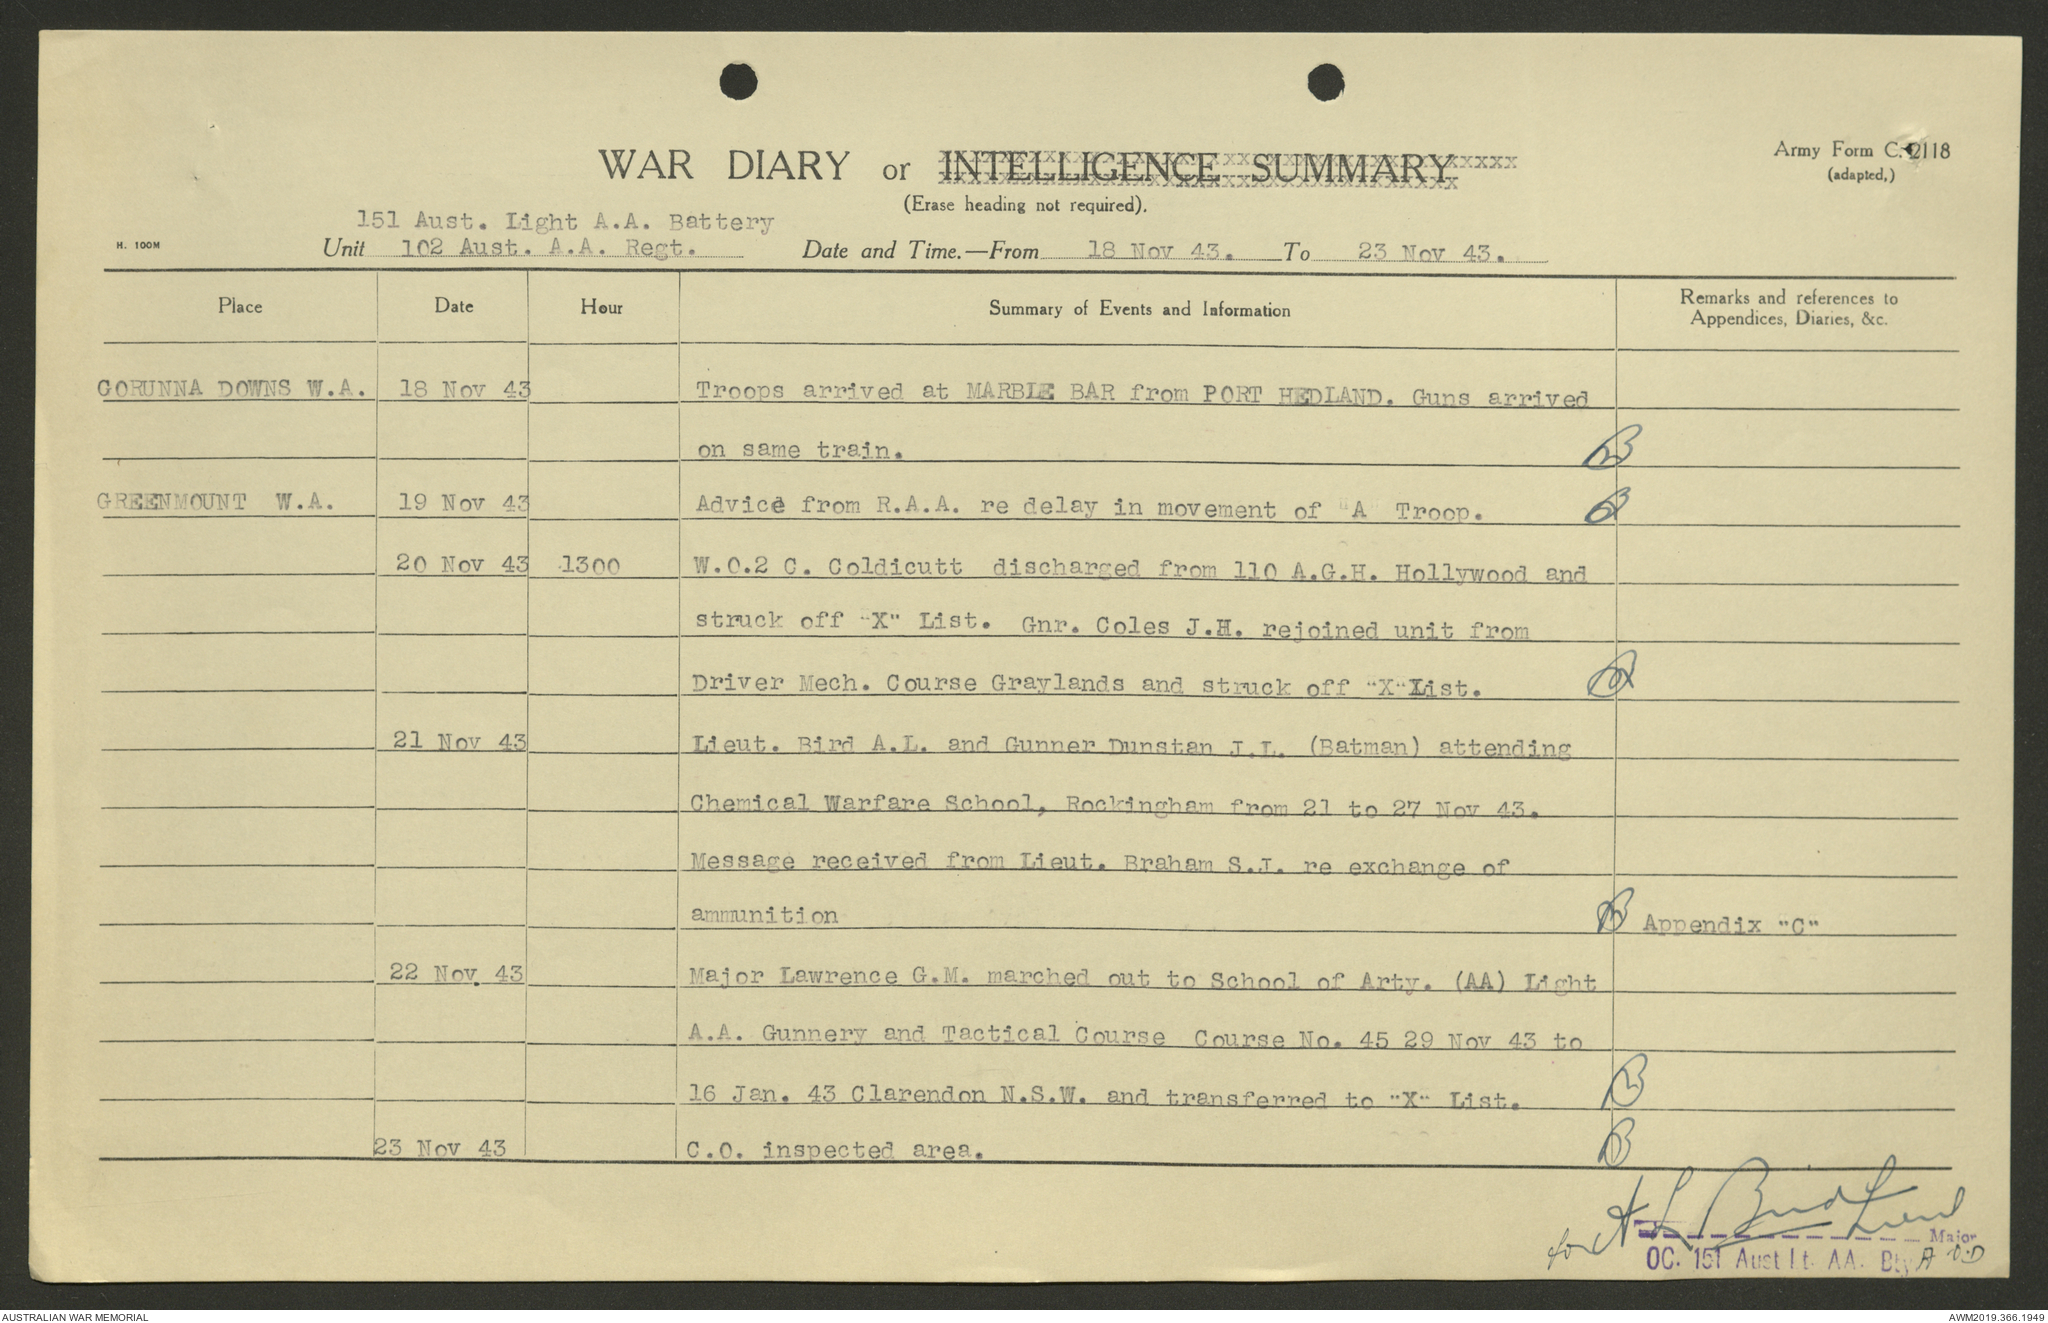 WAR DIARY or INTELLIGENCE SUMMARY
(Erase heading not required).
Army Form C. 2118
(adapted,)
151 Aust. Light A.A. Battery
H. 100M
Unit 102 Aust. A.A. Regt. Date and Time.—From 18 Nov 43. To 23 Nov 43.
Place Date Hour Summary of Events and Information Remarks and references to
Appendices, Diaries, &c.
GORUNNA DOWNS W.A. 18 Nov 43 Troops arrived at MARBLE BAR from PORT HEDLAND. Guns arrived
on same train. B
GREENMOUNT W.A. 19 Nov 43 Advice from R.A.A. re delay in movement of "A" Troop. B
20 Nov 43 1300 W.O.2 C. Coldicutt discharged from 110 A.G.H. Hollywood and
struck off "X" List. Gnr. Coles J.H. rejoined unit from
Driver Mech. Course Graylands and struck off "X"List. B
21 Nov 43 Lieut. Bird A.L. and Gunner Dunstan J.L. (Batman) attending
Chemical Warfare School, Rockingham from 21 to 27 Nov 43.
Message received from Lieut. Braham S.J. re exchange of
ammunition B Appendix "C"
22 Nov. 43 Major Lawrence G.M. marched out to School of Arty. (AA) Light
A.A. Gunnery and Tactical Course Course No. 45 29 Nov 43 to
16 Jan. 43 Clarendon N.S.W. and transferred to "X" List. B
23 Nov 43 C.O. inspected area. B
for A L Bird Lieut
Major
OC. 151 Aust Lt. AA. Bty
AUSTRALIAN WAR MEMORIAL
AWM2019.366.1949